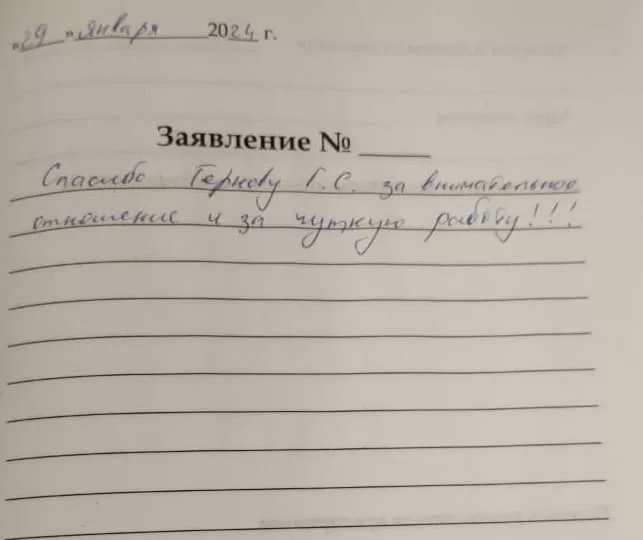 «29» января 2024 г.
Заявление № ____
Спасибо Тернову Г. С. за внимательное
отношение и за чуткую работу!!!